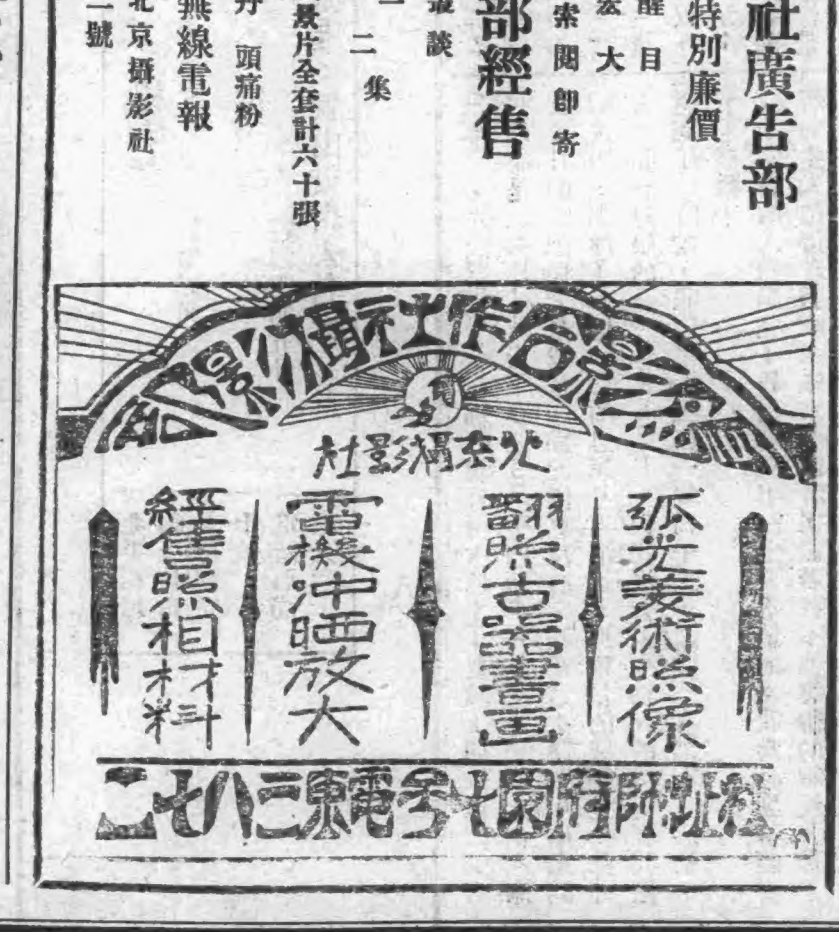 社廣告部
特別廉價
醒目
宏大
索閱即寄
部經售
叢談
二集
景片全套計六十張
頭痛粉
無線電報
北京攝影社
一號
影合作社攝影部
北京攝影社
弧光美術照像
翻照古器書画
電機冲晒放大
經售照相材料
社址府園七号電東三八七二